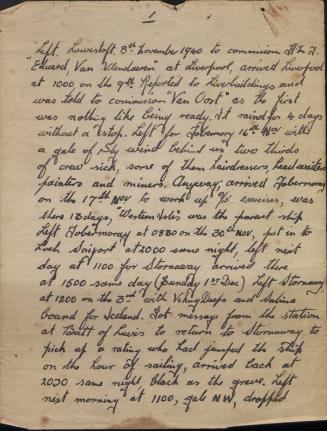 1
Left Lowestoft. 8th November 1940 to commision H.M.T.
"Edward, Van at Liverpool, arrived Liverpool
at 1000 on the 9th. Reported to Liverbuildings and
was told to commision "Van Oost" as the first
was nothing like being ready. It raind for 4 days
without a stop. Left for Tobermory 16th Nov with
a gale of S'ly wind behind us two thirds
of crew sick, some of them hairdressers, lead writers
painters and miners. Anyway, arrived Tobermoray
on the 17th NOV to work up A/S exercises, was
there 13 days, "Western Isles was the parent ship
Left Tobermoray at 0830 on the 30th NOV, put in to
Loch Snizort at 2000 same night, left next
day at 1100 for Stornaway arrived there
at 1500 same day (Sunday 1st Dec) Left Stornaway
at 1200 on the 3rd with Viking Deeps and Salina
bound for Iceland. Got message from the station
at Butt of Lewis to return to Stornaway to
pick up a rating who had jumped the ship
on the hour of sailing, arrived back at
2030 same night black as the grave. Left
next morning at 1100, gale NW, dropped